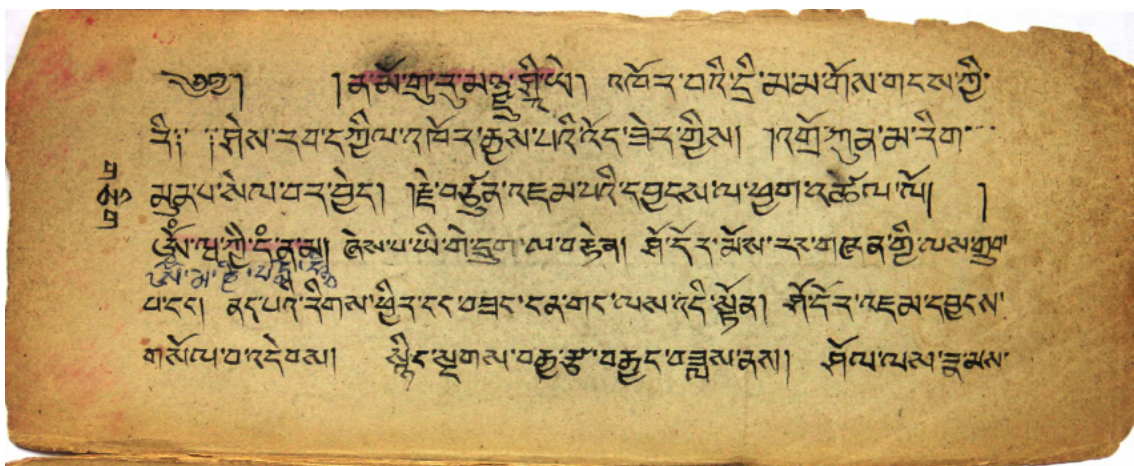 ༄༅།། །ན་མོ་གུ་རུ་མཉྫུ་ཤྲཱི་ཡེ། འཁོར་བའི་དྲི་མ་མ་གོས་གངས་ཀྱི་
རི༔ ༔ཤེས་རབ་དཀྱིལ་འཁོར་རྒྱས་པའི་འོད་ཟེར་གྱིས། །འགྲོ་ཀུན་མ་རིག་
མུན་པ་སེལ་བར་བྱེད། །རྗེ་བཙུན་འཇམ་པའི་དབྱངས་ལ་ཕྱག་འཚལ་ལོ། །
ཨོཾ་ཝཱ་ཀྱེ་དཾ་ན་མ། ཞེས་པ་ཡི་གེ་དྲུག་ལ་བརྟེན། ཤོ་དོར་མོས་རང་གཞན་གྱི་ལས་གྲུབ་
པ་དང། ནད་པའི་རིགས་ཕྱིར་དང་བཟང་ངན་གང་ལས་འདི་སྟོན། ཤོ་དོར་འཇམ་དབྱངས་
གསོལ་བ་འདེབས། སྙིང་སྔགས་བརྒྱ་རྩ་བརྒྱད་བཟླས་ནས། ཤོ་ལ་ལས་རྣམས་